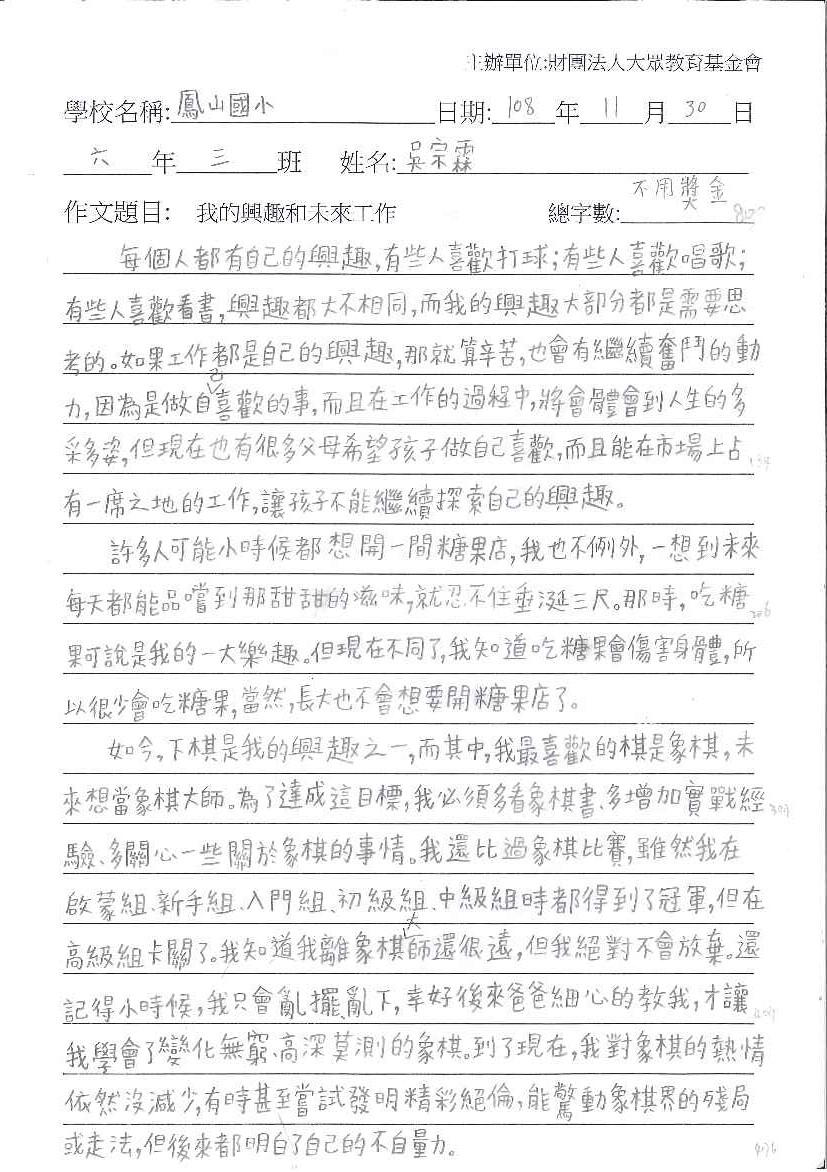 主辦單位:財團法人大眾教育基金會
學校名稱:鳳山國小 日期:108年11月30日
六年三班 姓名:吳宗霖
不用獎金
作文題目: 我的興趣和未來工作 總字數:
每個人都有自己的興趣,有些人喜歡打球;有些人喜歡唱歌;
有些人喜歡看書,興趣都大不相同,而我的興趣大部分都是需要思
考的。如果工作都是自己的興趣,那就算辛苦,也會有繼續奮鬥的動
力,因為是做自己喜歡的事,而且在工作的過程中,將會體會到人生的多
采多姿,但現在也有很多父母希望孩子做自己喜歡,而且能在市場上占
有一席之地的工作,讓孩子不能繼續探索自己的興趣。
許多人可能小時候都想開一間糖果店,我也不例外,一想到未來
每天都能品嚐到那甜甜的滋味,就忍不住垂涎三尺。那時,吃糖
果可說是我的一大樂趣。但現在不同了,我知道吃糖果會傷害身體,所
以很少會吃糖果,當然,長大也不會想要開糖果店了。
如今,下棋是我的興趣之一,而其中,我最喜歡的棋是象棋,未
來想當象棋大師。為了達成這目標,我必須多看象棋書、多增加實戰經
驗、多關心一些關於象棋的事情。我還比過象棋比賽,雖然我在
啟蒙組、新手組、入門組、初級組、中級組時都得到了冠軍,但在
高級組卡關了。我知道我離象棋大師還很遠,但我絕對不會放棄。還
記得小時候,我只會亂擺、亂下,幸好後來爸爸細心的教我,才讓
我學會了變化無窮、高深莫測的象棋。到了現在,我對象棋的熱情
依然沒減少,有時甚至嘗試發明精彩絕倫,能驚動象棋界的殘局
或走法,但後來都明白了自己的不自量力。